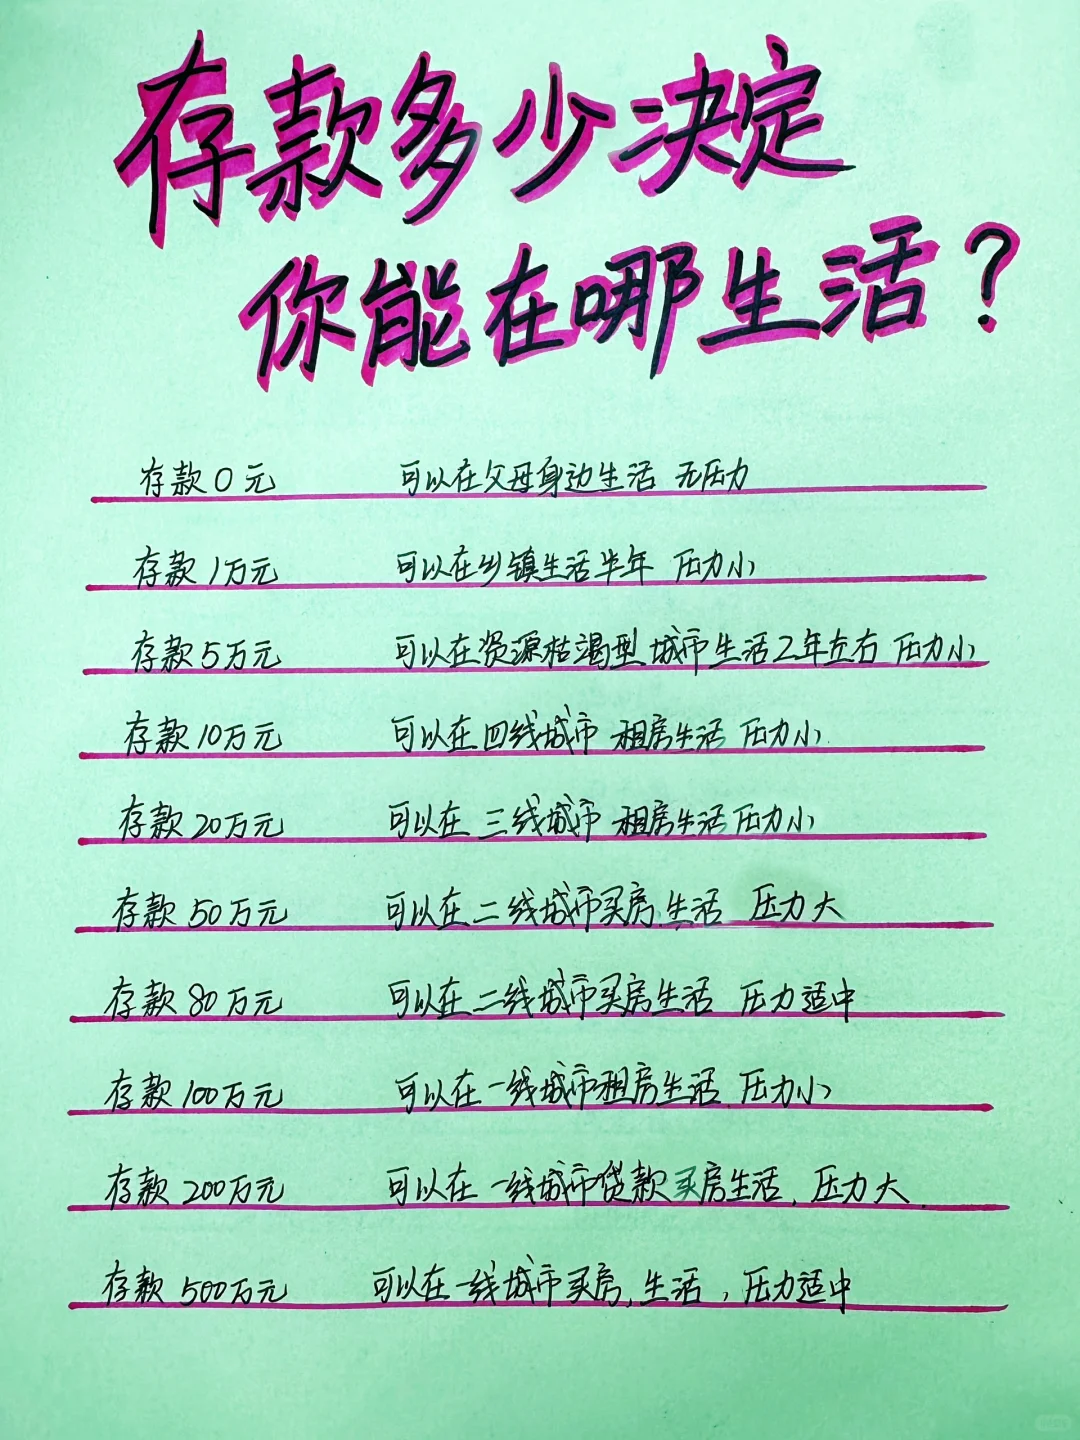 存款多少决定
你能在哪生活？
存款0元 可以在父母身边生活 无压力
存款1万元 可以在乡镇生活半年 压力小
存款5万元 可以在资源枯竭型城市生活2年左右 压力小
存款10万元 可以在四线城市 租房生活 压力小
存款20万元 可以在三线城市 租房生活 压力小
存款50万元 可以在二线城市买房.生活 压力大
存款80万元 可以在二线城市买房生活 压力适中
存款100万元 可以在一线城市租房生活 压力小
存款200万元 可以在一线城市贷款买房生活, 压力大.
存款500万元 可以在一线城市买房,生活,压力适中